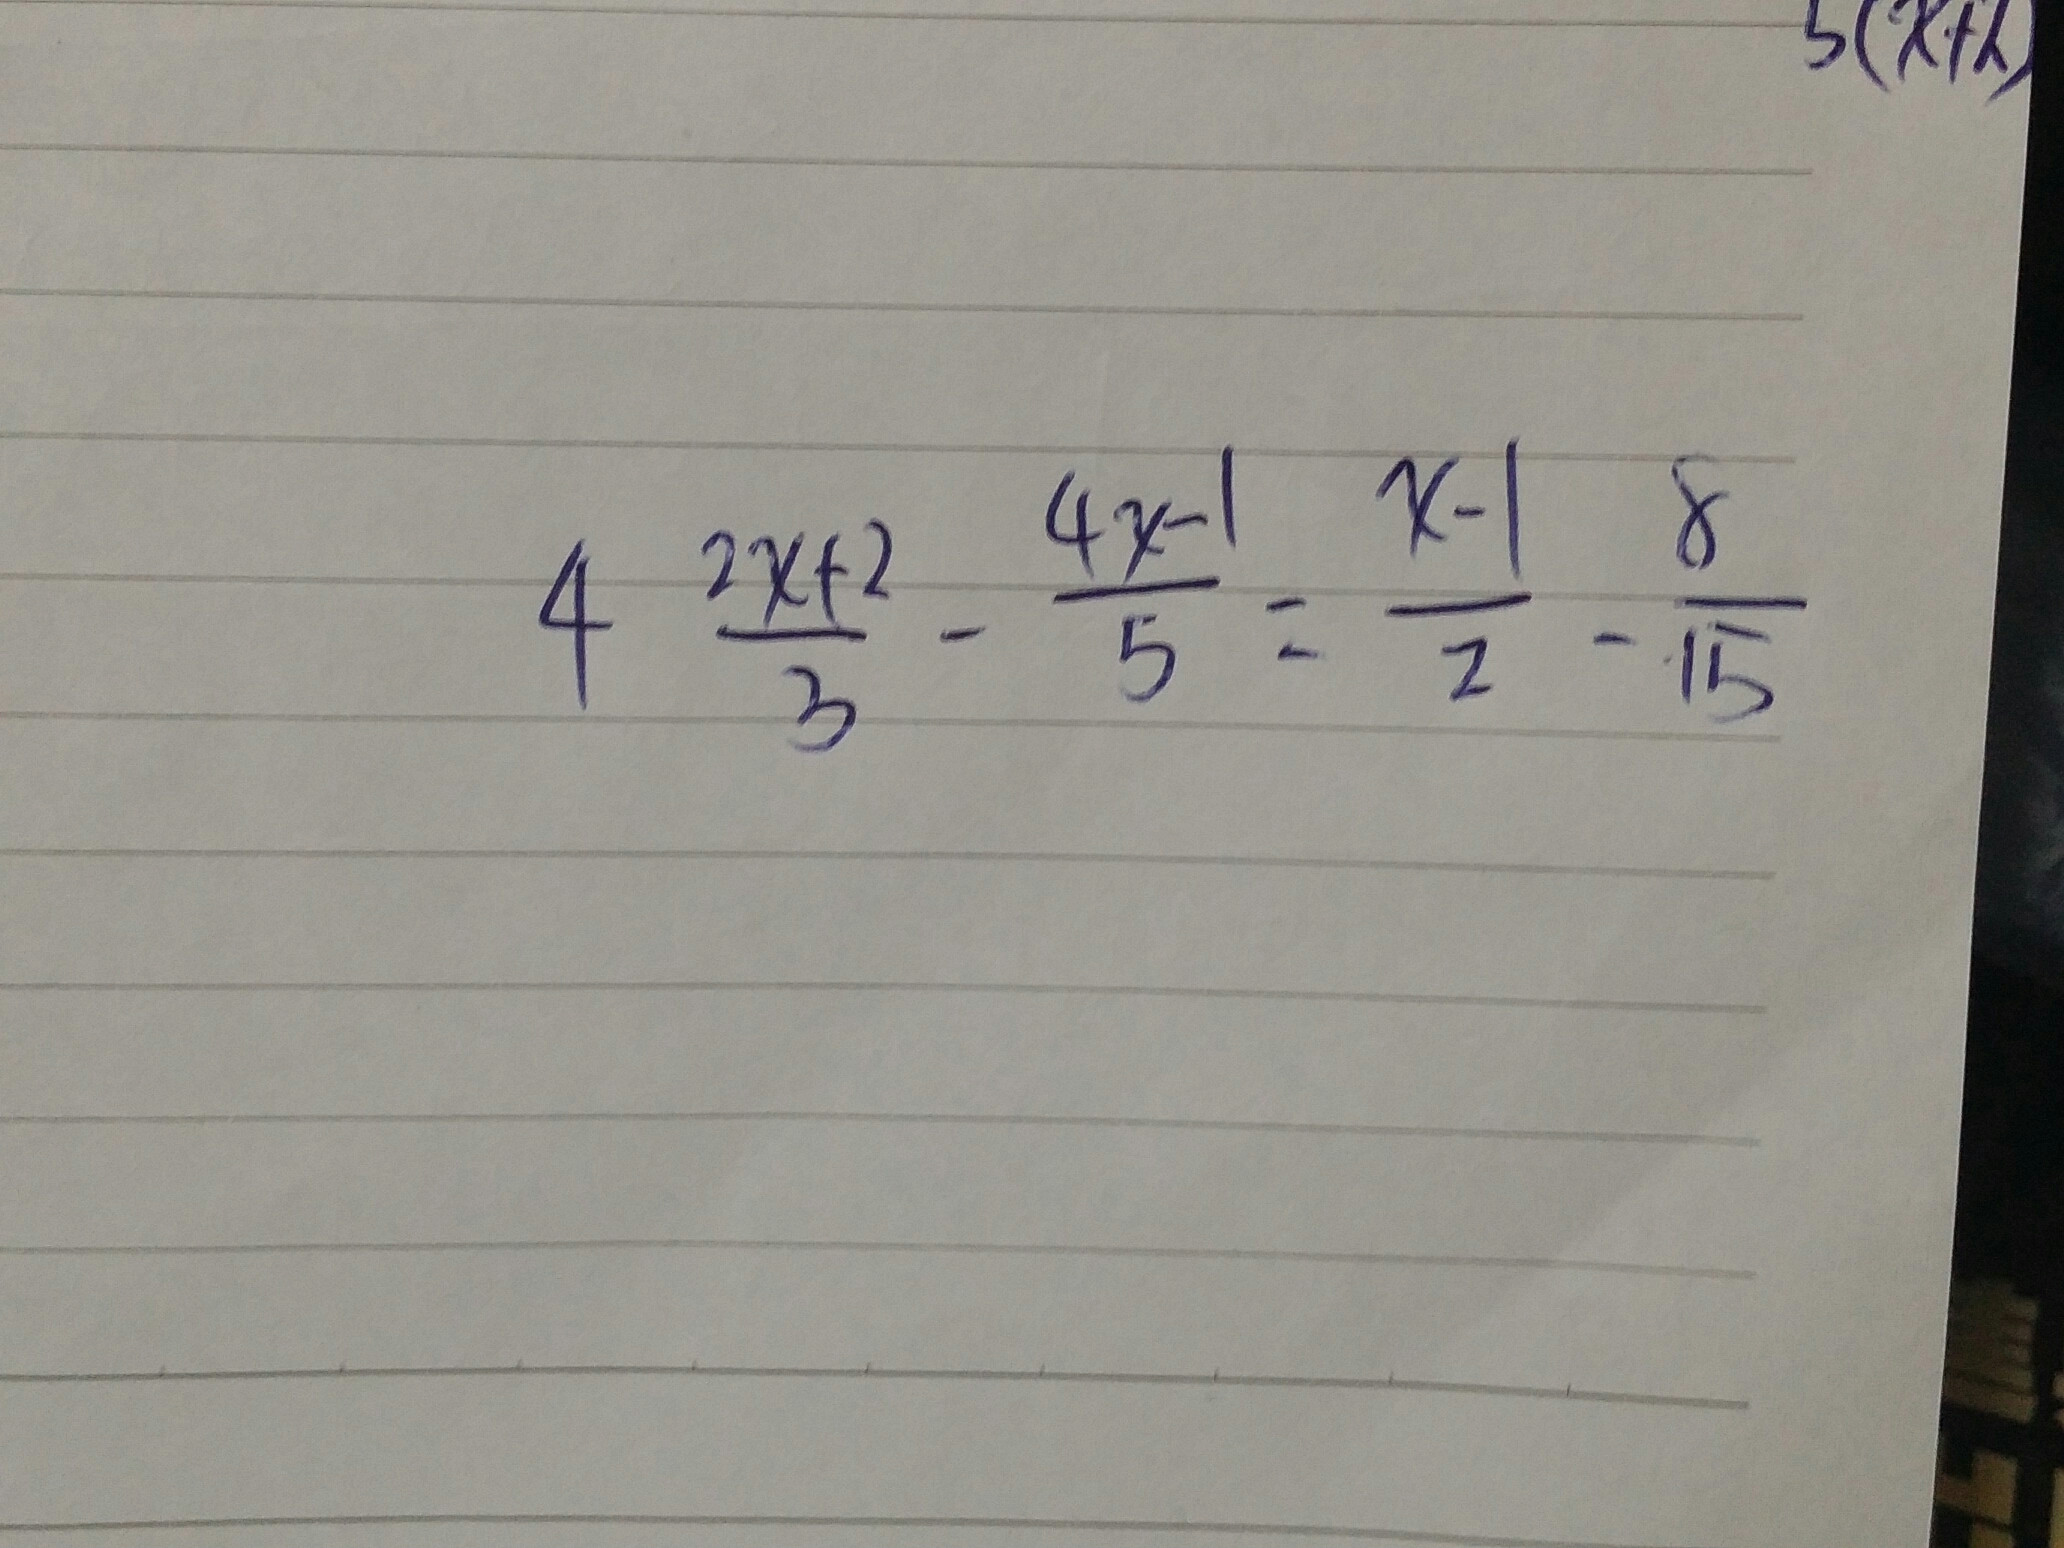 5(x+2)
4 \frac{2x+2}{3} - \frac{4x-1}{5} = \frac{x-1}{2} - \frac{8}{15}